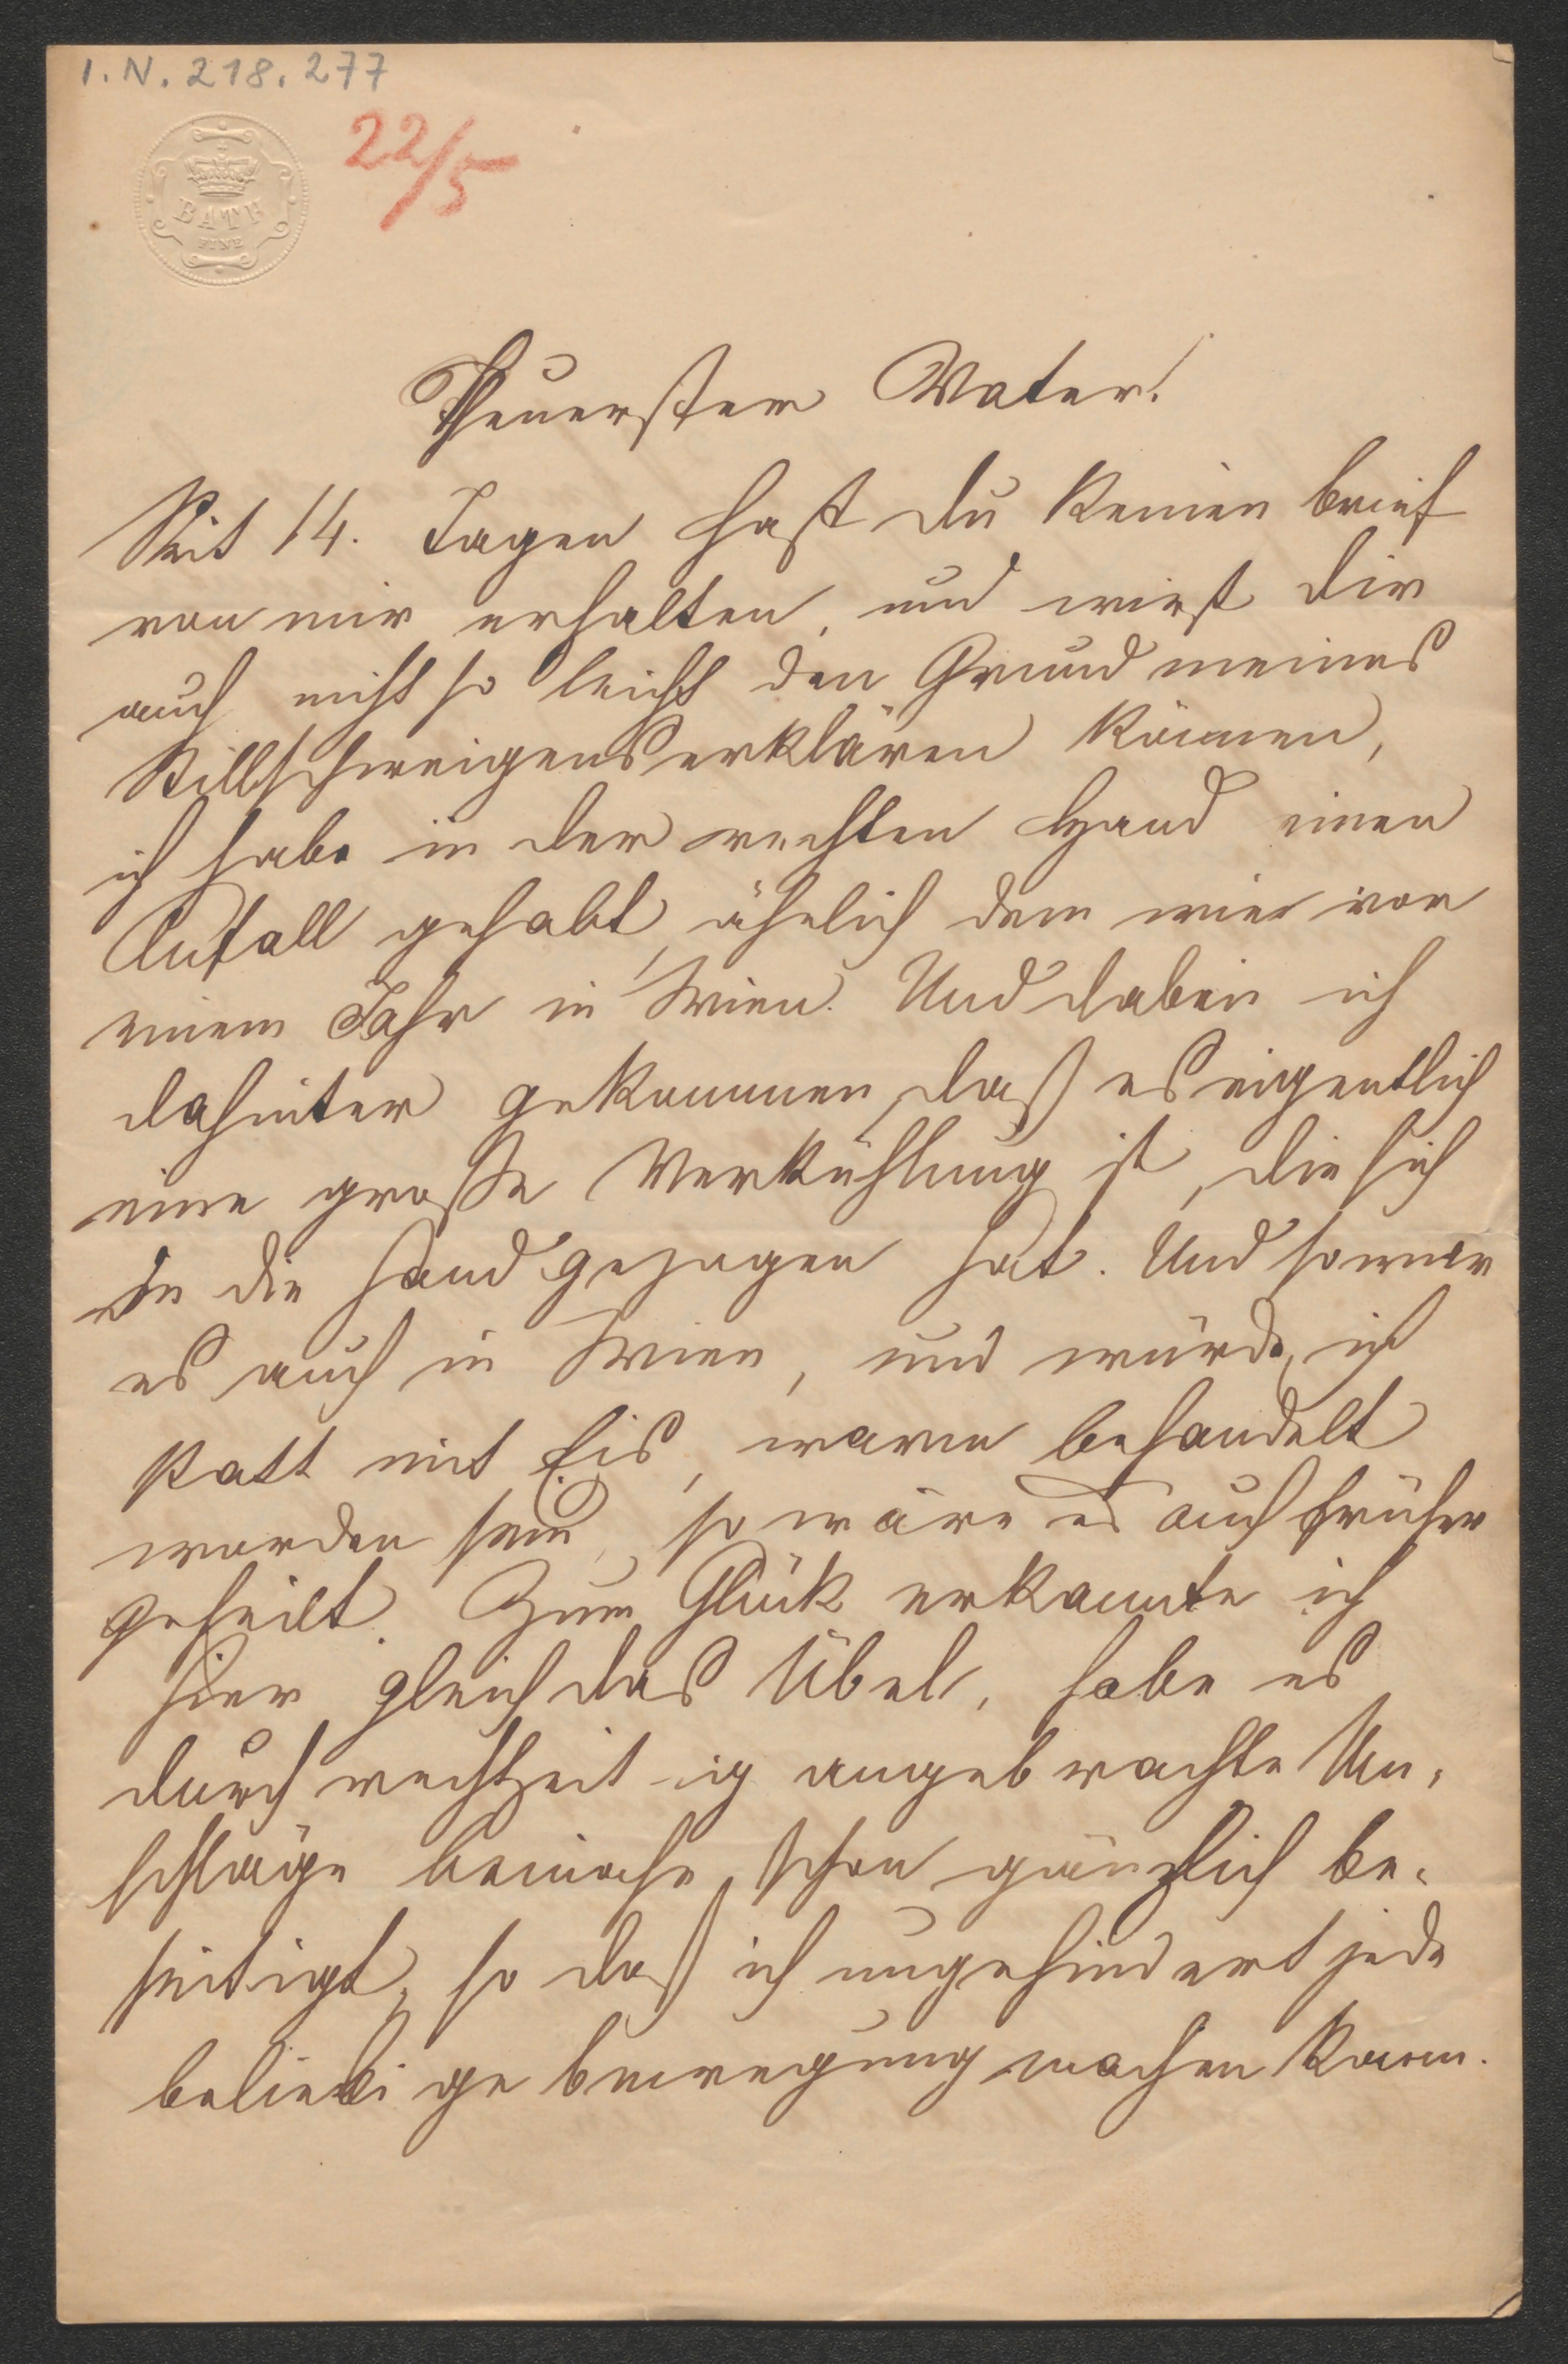 I.N. 218.277
22/5
BATH
FINE
Theuerster Vater!
Seit 14. Tagen hast du keinen brief
von mir erhalten, und wirst dir
auch nicht so leicht den Grund meines
Stillschweigens erklären können,
ich habe in der rechten Hand einen
Anfall gehabt, ähnlich dem wie vor
einem Jahr in Wien. Und dabei ich
dahinter gekommen, daß es eigentlich
eine große Verkühlung ist, die sich
in die Hand gezogen hat. Und so war
es auch in Wien, und würde ich
statt mit Eis, warm behandelt
worden sein, so wäre es auch früher
geheilt. Zum Glück erkannte ich
hier gleich das Übel, habe es
durch rechtzeitig angebrachte Um-
schläge beinahe schon gänzlich be-
seitigt, so daß ich ungehindert jede
beliebige bewegung machen kann.